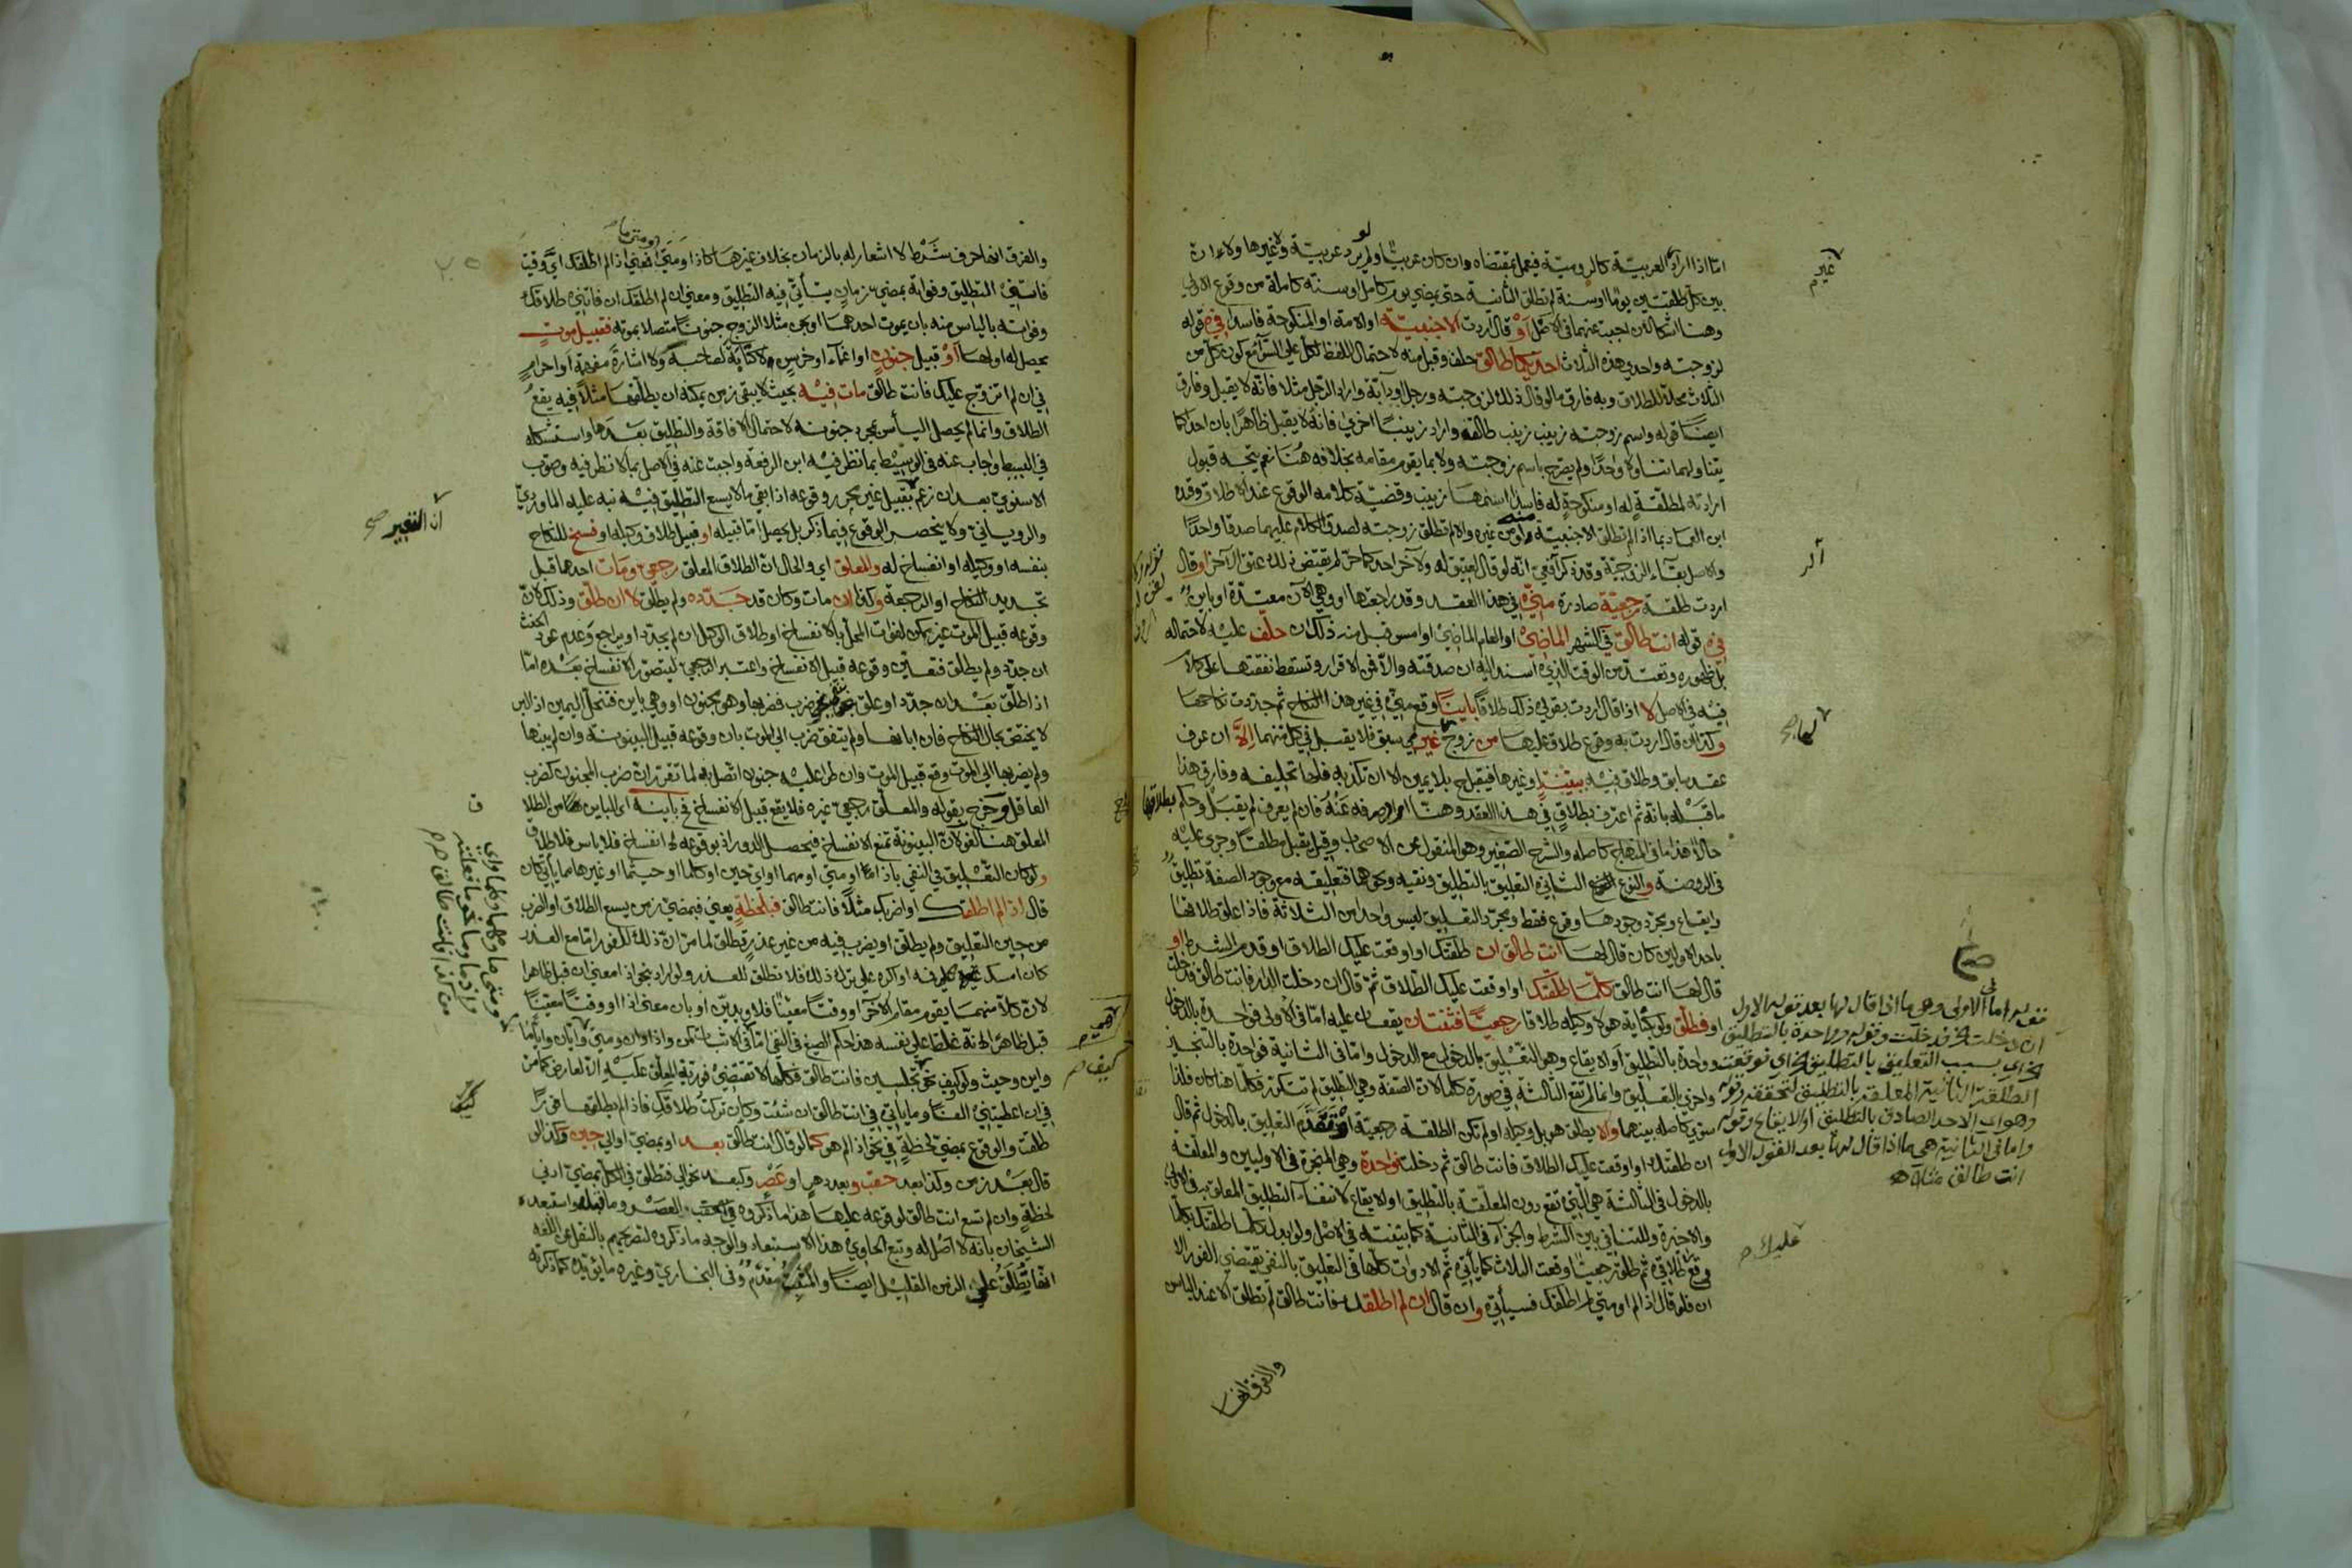 اما اذا اراد العربية كالرومية فيعمل بمقتضاه وان كان عربيا ولم يرد عربية ولا غيرها ولا
بين كل طلقتين يوما او سنة لم تطلق الثانية حتى يمضي يوم كامل او سنة كاملة من وقوع الاولى
وهنا اشكال اجبت عنهما في الاصل او قال اردت الاجنبية او الامة او المنكوحة فاسدا في قوله
لزوجته واحدى هذه الثلاث احداكما طالق حلف وقبل منه لاحتمال اللفظ لكل على السواء مع كون كل من
الثلاث محلا للطلاق وبه فارق ما لو قال ذلك لزوجته ورجل او دابة واراد الرجل مثلا فانه لا يقبل وفارق
ايضا قوله واسم زوجته زينب زينب طالق واراد زينبا اخرى فانه لا يقبل ظاهرا بان احداكما
يتناولهما تناولا واحدا ولم يصرح باسم زوجته ولا بما يقوم مقامه بخلافه هنا نعم يتجه قبول
ارادته لمطلقة له او منكوحة له فاسدا اسمها زينب وقضية كلامه الوقوع عند الاطلاق وقيده
ابن العماد بما اذا لم تطلق الاجنبية منه او من غيره والا لم تطلق زوجته لصدق الكلام عليهما صدقا واحدا
والاصل بقاء الزوجية وقد ذكر الرافعي انه لو قال لعتيق له ولآخر احدكما حر لم يقتض ذلك عتق الآخر او قال
اردت طلقة رجعية صادرة مني في هذا العقد وقد راجعتها او وهي الآن معتدة او باين
في قوله انت طالق في الشهر الماضي او العام الماضي او امس قبل منه ذلك ان حلف عليه لاحتماله
بل ظهوره وتعتد من الوقت الذي اسند اليه ان صدقته والا فمن الاقرار وتسقط نفقتها على كلام
فيه في الاصل لا اذا قال اردت بقولي ذلك طلاقا باينا وقع مني في غير هذا النكاح ثم جددت نكاحها
وكذا ان قال اردت به وقوع طلاق عليها من زوج غيري سبق فلا يقبل في كل منهما الا ان عرف
عقد سابق وطلاق فيه ببينة او غيرها فيقبل بلا يمين الا ان تكذبه فلها تحليفه وفارق هذا
ما قبله بانه ثم اعترف بطلاق في هذا العقد وهنا صرفه عنه فان لم يعرف لم يقبل وحكم بطلاقها
حالا هذا ما في المنهاج كاصله والشرح الصغير وهو المنقول عن الاصحاب وقيل يقبل مطلقا وجرى عليه
في الروضة والنوع الثاني التعليق بالتطليق ونفيه ونحوهما فتعليقه مع وجود الصفة تطليق
وايقاع ومجرد وجودها وقوع فقط ومجرد التعليق ليس واحدا من الثلاثة فاذا علق طلاقها
باحد الاولين كان قال لها انت طالق ان طلقتك او اوقعت عليك الطلاق او قدم الشرط او
قال لها انت طالق كلما طلقتك او اوقعت عليك الطلاق ثم قال ان دخلت الدار فانت طالق فدخلت
او فطلق ولو بكناية هو لا وكيله طلاقا رجعيا فثنتان يقعان عليه اما في الاولى فواحدة بالدخول
وواحدة بالتطليق او الايقاع وهو التعليق بالدخول مع الدخول واما في الثانية فواحدة بالتنجيز
واخرى بالتعليق وانما لم تقع الثالثة في صورة كلما لان الصفة وهي التطليق لم تتكرر فكلما هنا كان فلذا
سوى كاصله بينهما والا يطلق هو بل وكيله او لم تكن الطلقة رجعية او تقدم التعليق بالدخول ثم قال
ان طلقتك او اوقعت عليك الطلاق فانت طالق ثم دخلت فواحدة وهي المنجزة في الاوليين والمعلقة
بالدخول في الثالثة هي التي تقع دون المعلقة بالتطليق او الايقاع لانتفاء التطليق المعلق به في الاولى
والاخيرة وللتنافي بين الشرط والجزاء في الثانية كما بينته في الاصل ولو ابدل كلما طلقتك بكلما
وقع طلاقي ثم طلق رجعيا وقعت الثلاث كما يأتي ثم الادوات كلها في التعليق بالنفي يقتضي الفور الا
ان فلو قال اذا لم او متى لم اطلقك فسيأتي وان قال ان لم اطلقك فانت طالق لم تطلق الا عند الياس
والفرق انها
لو
غيرم
قوله اما في الاولى وهي ما اذا قال لها بعد قوله الاول
ان دخلت فدخلت وقوله وواحدة بالتطليق
اي بسبب التعليق بالتطليق اي فوقعت
الطلقة الثانية المعلقة بالتطليق لتحققه وقوله
وهو اي الاحد الصادق بالتطليق او الايقاع وقوله
واما في الثانية هي ما اذا قال لها بعد القول الاول
انت طالق مثلا اه
عليك
والفرق انها حرف شرط لا اشعار له بالزمان بخلاف غيرها كاذا ومتى فمعنى اذا لم اطلقك اي وقت
فاتني فيه التطليق وفواته بمضي زمان يتأتى فيه التطليق ومعنى ان لم اطلقك ان فاتني طلاقك
وفواته بالياس منه بان يموت احدهما او يجن مثلا الزوج جنونا متصلا بموته فقبيل موت
يحصل له او لها او قبيل جنون او اغماء او خرس ولا كتابة لصاحبه ولا اشارة مفهمة او احرام
في ان لم اتزوج عليك فانت طالق مات فيه بحيث لا يبقى زمن يمكنه ان يطلقها مثلا فيه يقع
الطلاق وانما لم يحصل اليأس بمجرد جنونه لاحتمال الافاقة والتطليق بعدها واستشكله
في البسيط واجاب عنه في الوسيط بما نظر فيه ابن الرفعة واجبت عنه في الاصل بما لا نظر فيه وصوب
الاسنوي بعد ان زعم تقييل غير محرر وقوعه اذا بقي ما لا يسع التطليق فيه نبه عليه الماوردي
والروياني ولا ينحصر الوقوع فيما ذكر بل يحصل اما قبيله او قبيل طلاق وكيله او فسخ للنكاح
بنفسه او وكيله او انفساخ له والمعلق اي والحال ان الطلاق المعلق رجعي ومات احدهما قبل
تجديد النكاح او الرجعة وكذا ان مات وكان قد جدده ولم يطلق لا ان طلق وذلك لان
وقوعه قبيل الموت غير ممكن لفوات المحل بالانفساخ او طلاق الوكيل ان لم يجدد او يراجع وعدم عود الحنث
ان جدد ولم يطلق فتعين وقوعه قبيل الانفساخ واعتبر الرجعي ليتصور الانفساخ بعده اما
اذا طلق بعد ان جدد او علق بنفي نحو ضرب فضربها وهو مجنون او وهي باين فتنحل اليمين اذ البر
لا يختص بحال النكاح فان ابانها ولم يتفق ضرب الى الموت بان وقوعه قبيل البينونة وان لم يبنها
ولم يضربها الى الموت وقع قبيل الموت وان طرا عليه جنون اتصل به لما تقرر ان ضرب المجنون كضرب
العاقل وخرج بقوله والمعلق رجعي غيره فلا يقع قبيل الانفساخ في باينه اي الباين من الطلاق
المعلق هنا لغو لان البينونة تمنع الانفساخ فيحصل الدور اذ بوقوعه لا انفساخ فلا ياس فلا طلاق
ولو كان التعليق في النفي باذا او متى او مهما او اي حين او كلما او حيثما او غيرها مما يأتي كان
قال اذا لم اطلقك او اضربك مثلا فانت طالق فبلحظة يعني فبمضي زمن يسع الطلاق او الضرب
من حين التعليق ولم يطلق او يضرب فيه من غير عذر تطلق لما مر ان ذلك للفور اما مع العذر
كان امسك فمه او اكره على ترك ذلك فلا تطلق للعذر ولو اراد بنحو اذا معنى ان قبل ظاهرا
لان كلا منهما يقوم مقام الآخر او وقتا معينا فلا ويدين او بان معنى اذا او وقتا معينا
قبل ظاهرا لانه غلظ على نفسه هذا حكم الصيغ في النفي اما في الاثبات كمن واذا وان ومتى وايان وايما
واين وحيث ولو كيف نحو تجلسين فانت طالق فكلها لا تقتضي فورية المعلق عليه الا لعارض كما من
في ان اعطيتني الفا وما يأتي في انت طالق ان شئت وكان تركت طلاقك فاذا لم يطلقها فورا
طلقت والوقوع بمضي لحظة في نحو اذا لم هو كما لو قال انت طالق بعد او بمضي او الى حين وكذا لو
قال بعد زمن وكذا بعد حقب وبعد دهر او عصر وكبعد نحو الى فتطلق في الكل بمضي ادنى
لحظة وان لم تسع انت طالق لوقوعه عليها هذا ما ذكروه في الحقب والعصر وما قبله واستبعده
الشيخان بانه لا اصل له وتبع الحاوي هذا الاستبعاد والوجه ما ذكروه لتصريحهم بالنقل عن اللغة
انها تطلق على الزمن القليل ايضا والمثبت مقدم وفي البخاري وغيره ما يؤيده كما ذكرته
ان التغيير صح